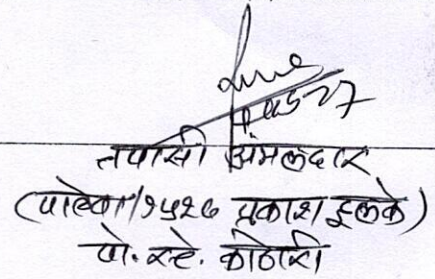 तपासी अंमलदार
(पोहेकाॅ/१५२७ प्रकाश इलके)
पो. स्टे. कोठारी